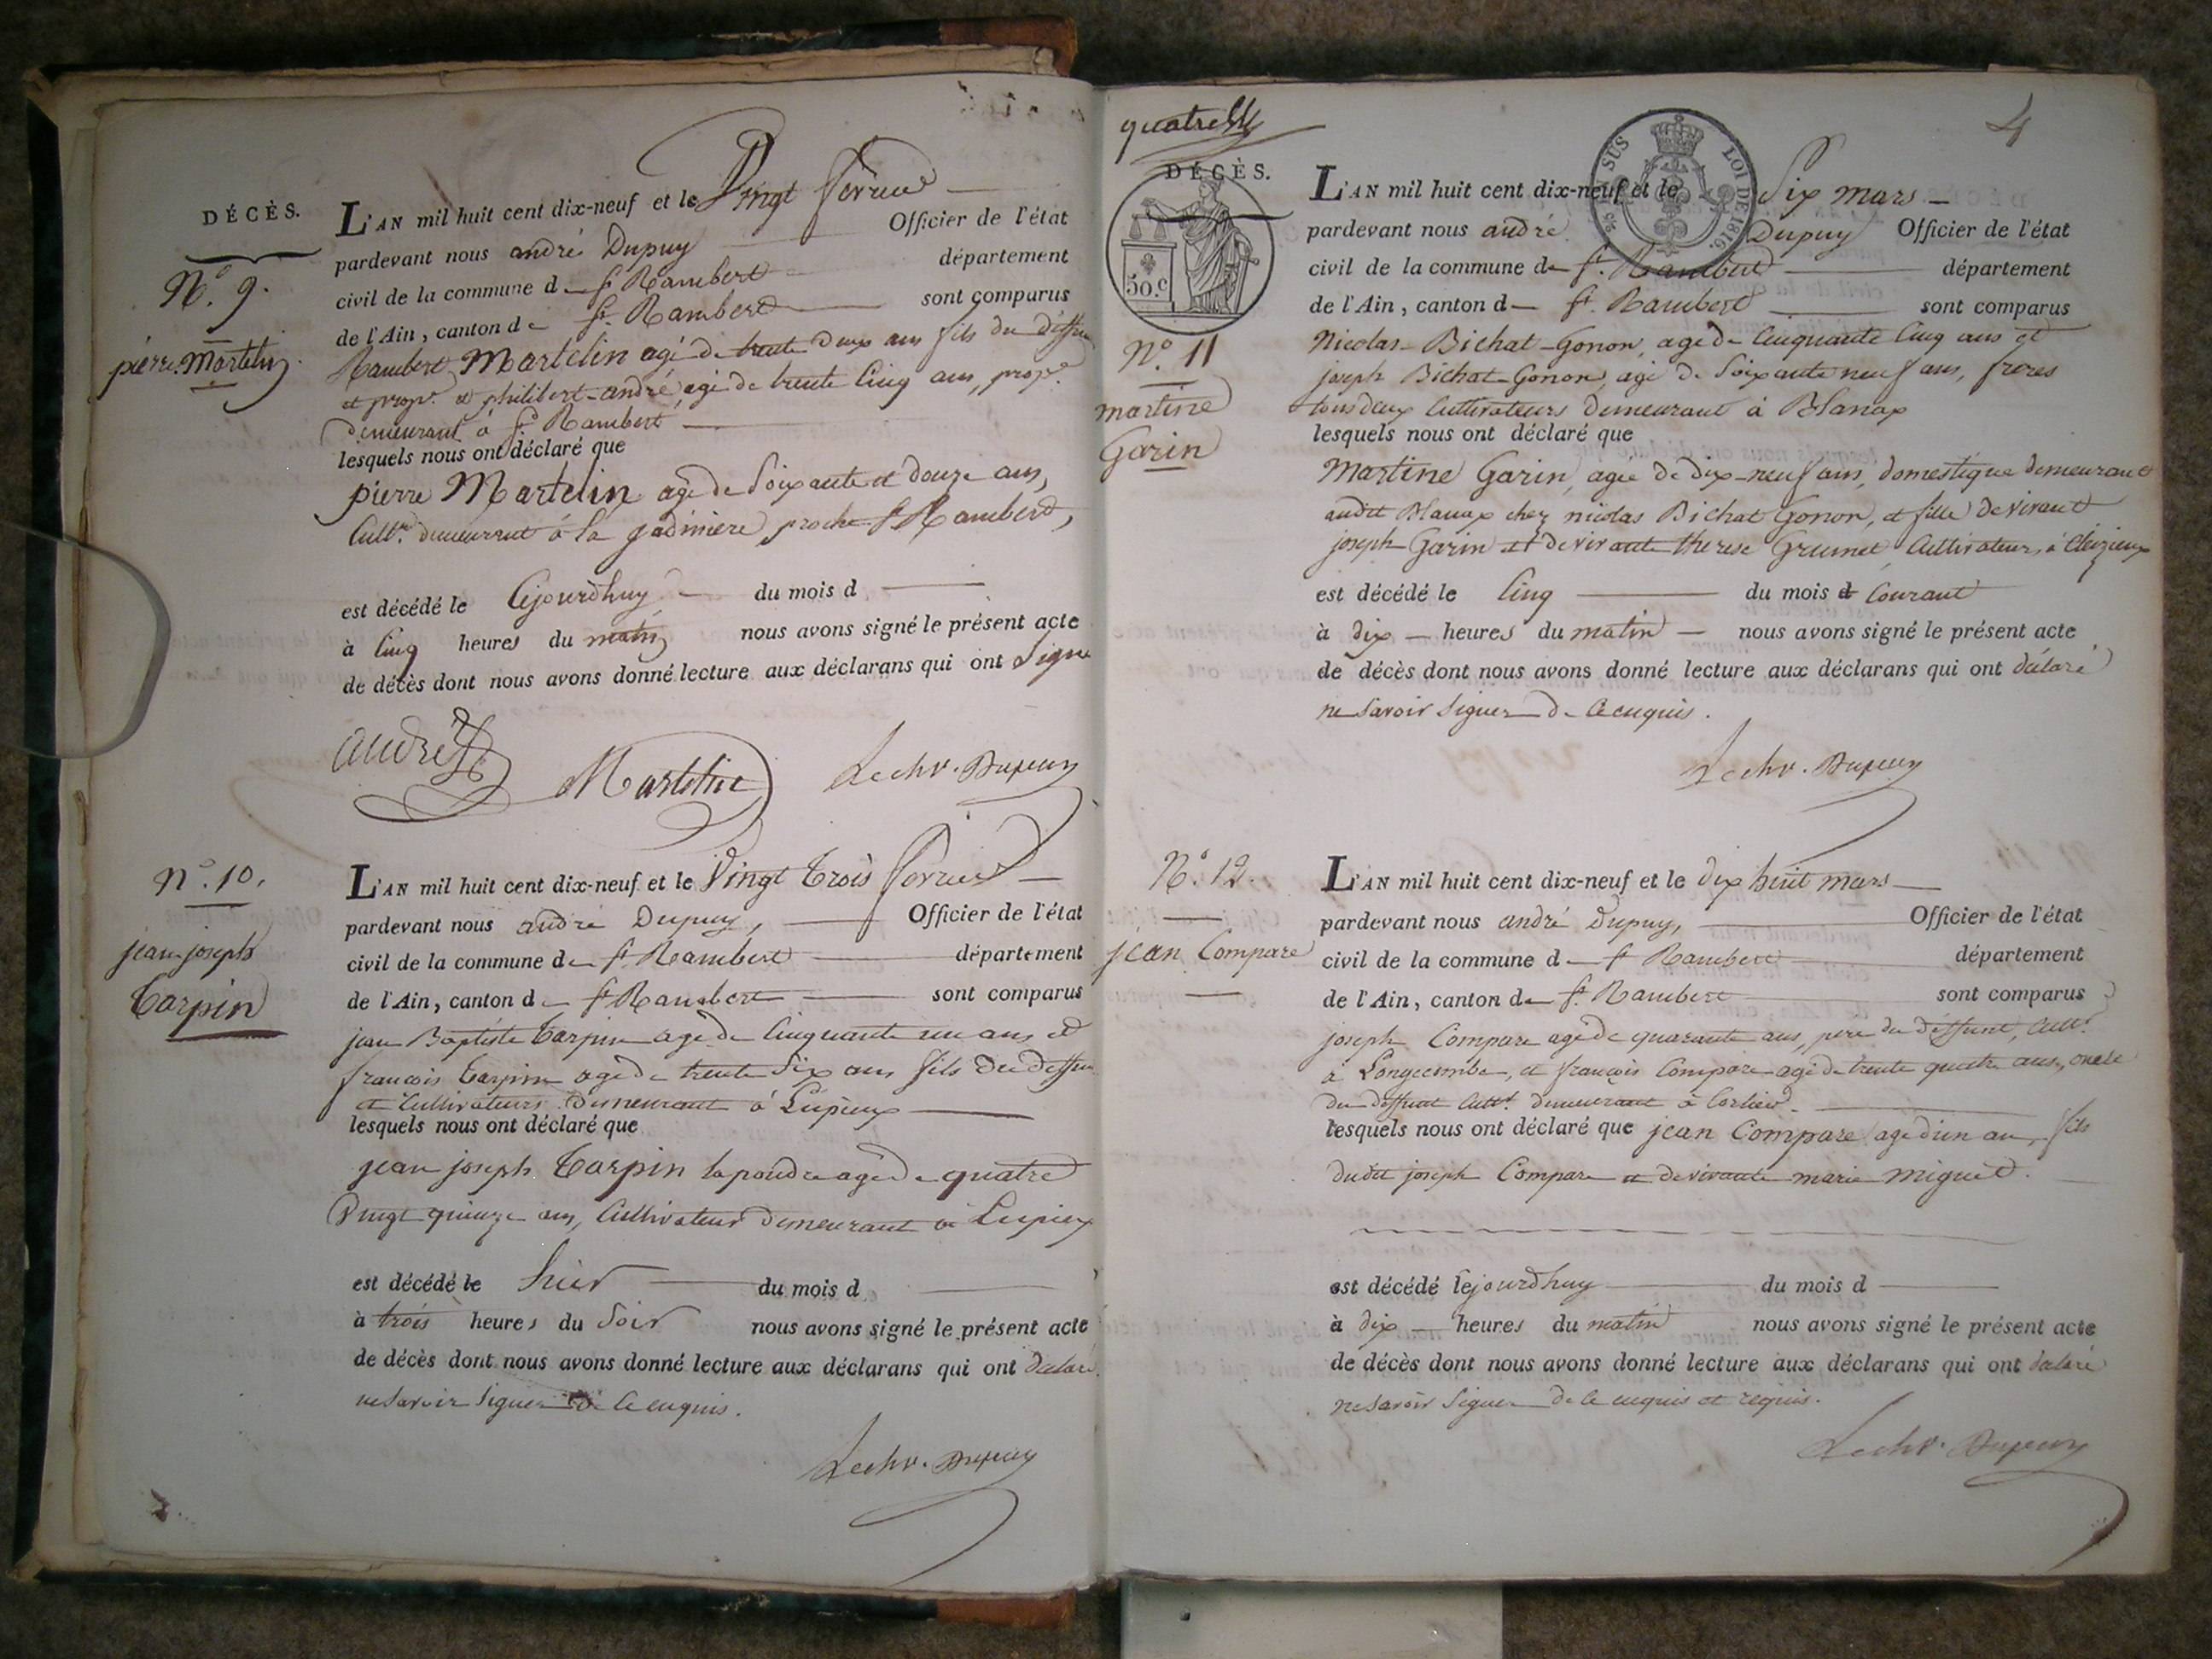 DÉCÈS.
N.º 9.
pierre Martelin
L'AN mil huit cent dix-neuf et le Vingt fevrier
pardevant nous andré Dupuy Officier de l'état
civil de la commune de St. Rambert département
de l'Ain, canton de St. Rambert sont comparus
Rambert Martelin agé de trente deux ans fils du deffun
et prop.re et philibert andré, agé de trente cinq ans, prop.re
demeurant à St. Rambert
lesquels nous ont déclaré que
pierre Martelin agé de Soixante et douze ans,
Cult.r demeurant à la proche St. Rambert,
est décédé le Cejourdhuy du mois d
à Cinq heures du matin nous avons signé le présent acte
de décès dont nous avons donné lecture aux déclarans qui ont Signé
andré Martelin Lechv. Dupuy
N.º 10.
jean joseph
Tarpin
L'AN mil huit cent dix-neuf et le Vingt trois fevrier
pardevant nous andré Dupuy, Officier de l'état
civil de la commune de St. Rambert département
de l'Ain, canton de St. Rambert sont comparus
jean Baptiste Tarpin agé de Cinquante un ans et
francois Tarpin agé de trente Six ans fils du deffun
et Cultivateurs demeurant à Lupieux
lesquels nous ont déclaré que
jean joseph Tarpin lapoudre agé de quatre
Vingt quinze ans, Cultivateur demeurant à Lupieu
est décédé le hier du mois d
à trois heures du Soir nous avons signé le présent acte
de décès dont nous avons donné lecture aux déclarans qui ont déclaré
ne Savoir Signer de ce enquis.
Lechv. Dupuy
quatre
4
DÉCÈS.
50.C
SUS LOI DE 1816.
N.º 11
martine
Garin
L'AN mil huit cent dix-neuf et le Six mars
pardevant nous andré Dupuy Officier de l'état
civil de la commune de St. Rambert département
de l'Ain, canton d St. Rambert sont comparus
Nicolas Bichat-Gonon, agé de Cinquante Cinq ans et
joseph Bichat-Gonon, agé de Soixante neuf ans, freres
tous deux Cultivateurs demeurant à Blanax
lesquels nous ont déclaré que
Martine Garin, agée de dix-neuf ans, domestique demeurant
audit Blanax chez nicolas Bichat Gonon, et fille de vivant
joseph Garin et de vivante therese Grumet Cultivateurs, à Cleizieux
est décédé le Cinq du mois d Courant
à dix heures du matin nous avons signé le présent acte
de décès dont nous avons donné lecture aux déclarans qui ont déclaré
ne Savoir Signer de Ce enquis.
Lechv. Dupuy
N.º 12.
jean Compare
L'AN mil huit cent dix-neuf et le dix huit mars
pardevant nous andré Dupuy, Officier de l'état
civil de la commune d St Rambert département
de l'Ain, canton de St. Rambert sont comparus
joseph Compare agé de quarante ans, père du deffunt, Cult.r
à Longecombe, et françois Compare agé de trente quatre ans, oncle
du deffunt Cult.r demeurant à Corlier
lesquels nous ont déclaré que jean Compare, agé d'un an, fils
dudit joseph Compare et de vivante marie miguet.
est décédé lejourdhuy du mois d
à dix heures du matin nous avons signé le présent acte
de décès dont nous avons donné lecture aux déclarans qui ont déclaré
ne Savoir Signer de Ce enquis et requis.
Lechv. Dupuy